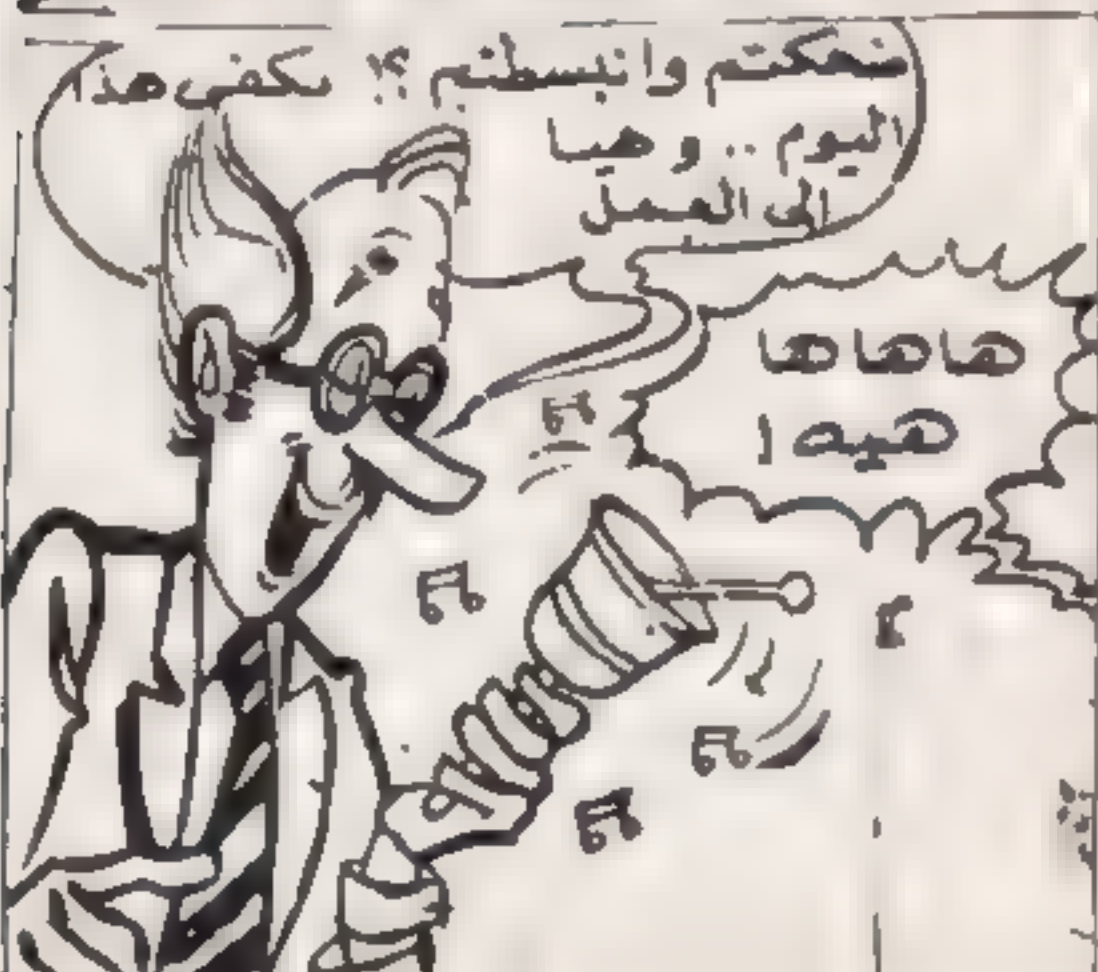 ضحكتم وانبسطتم ؟! يكفي هذا
اليوم .. وهيا
الى العمل
هاهاها
هيه !